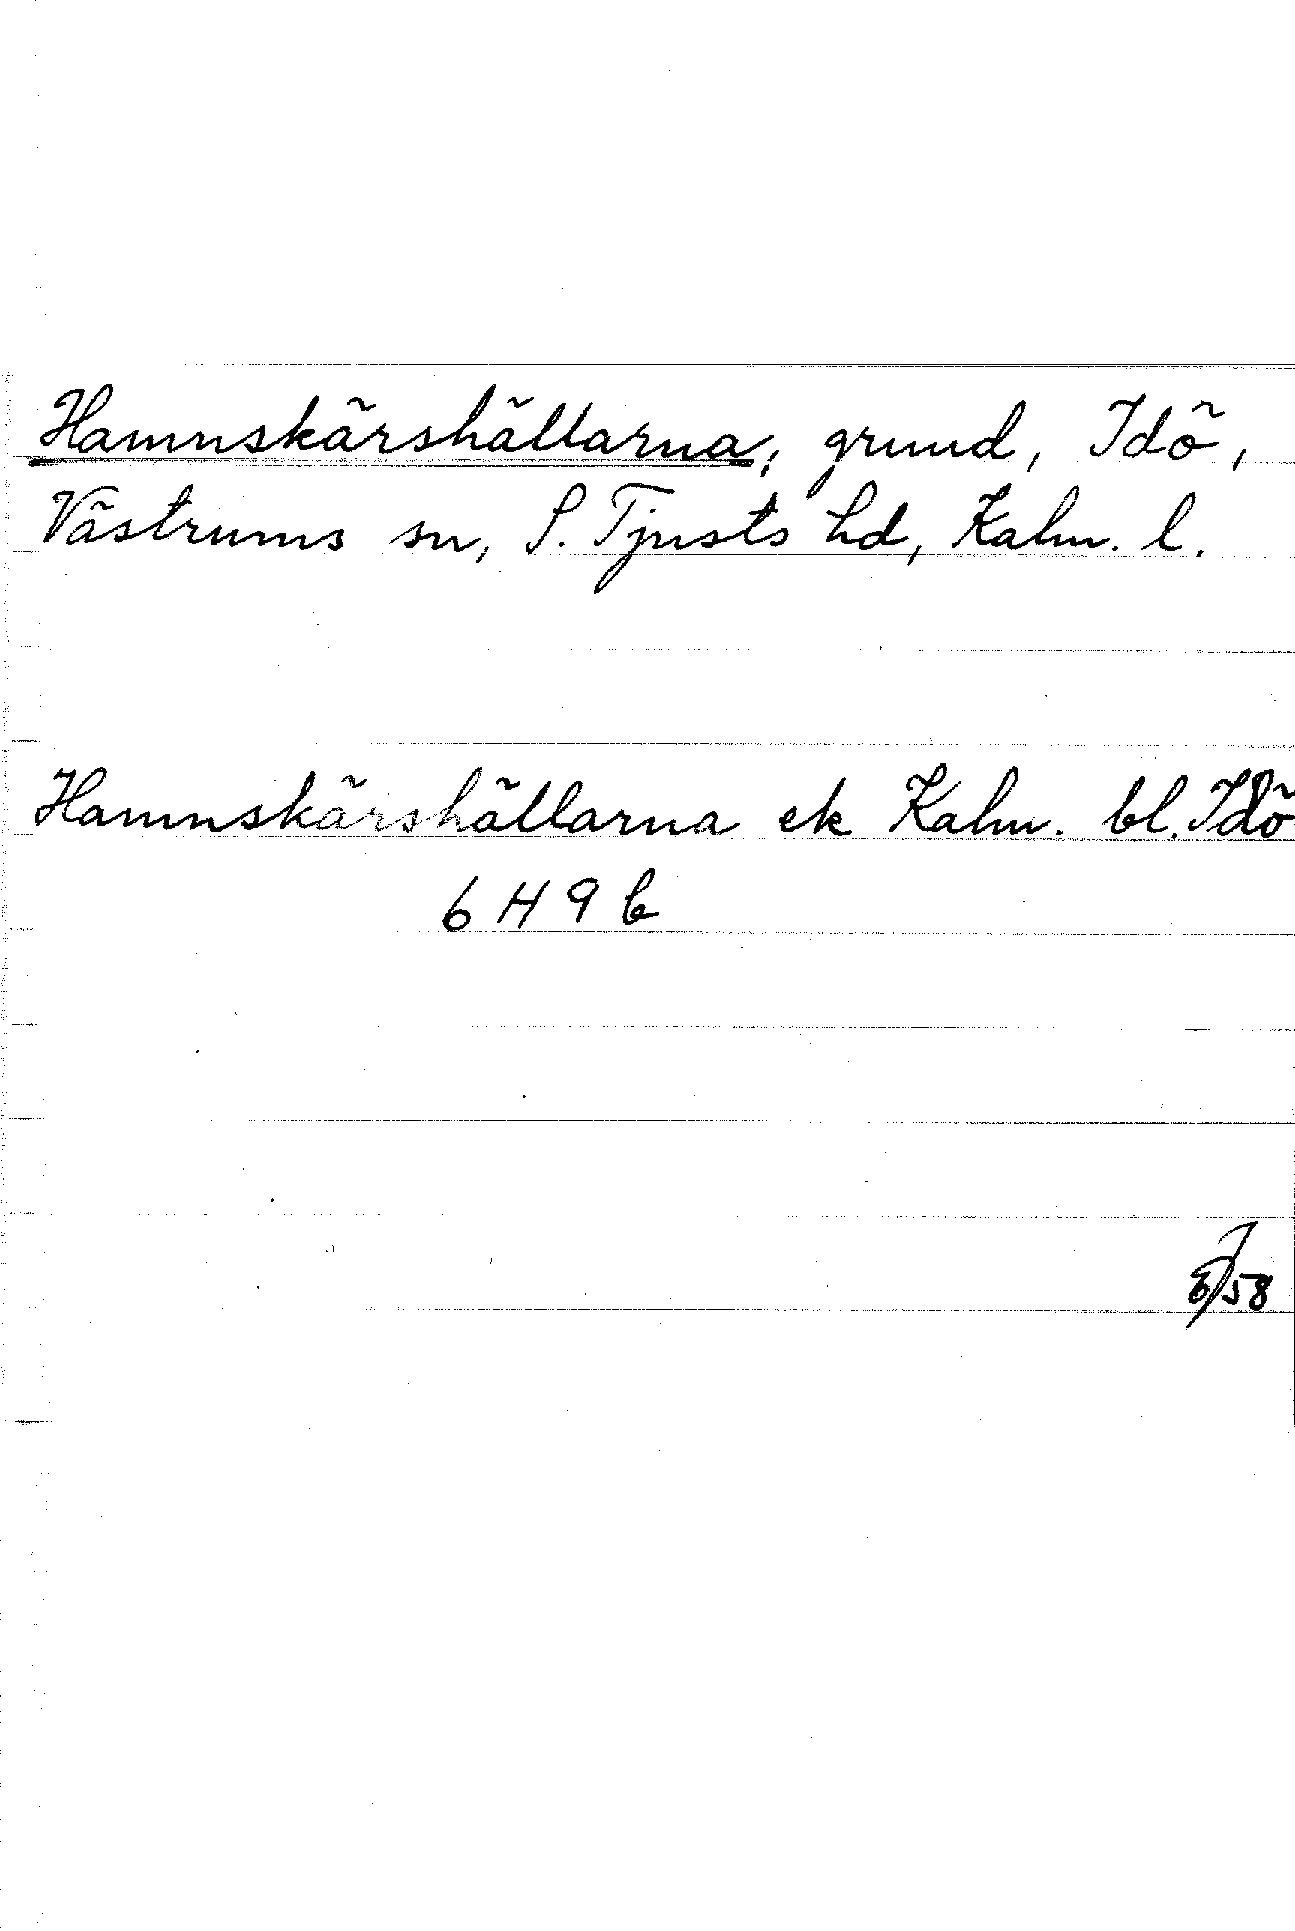 Hamnskärshällarna, grund, Idö,
Västrums sn, S. Tjusts hd, Kalm. l.
Hamnskärshällarna ek Kalm. bl. Idö
6 H 9 b
58